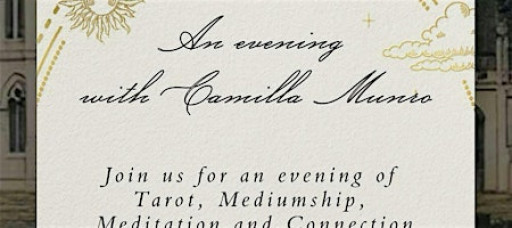 An evening
with Camilla Munro
Join us for an evening of
Tarot, Mediumship,
Meditation and Connection